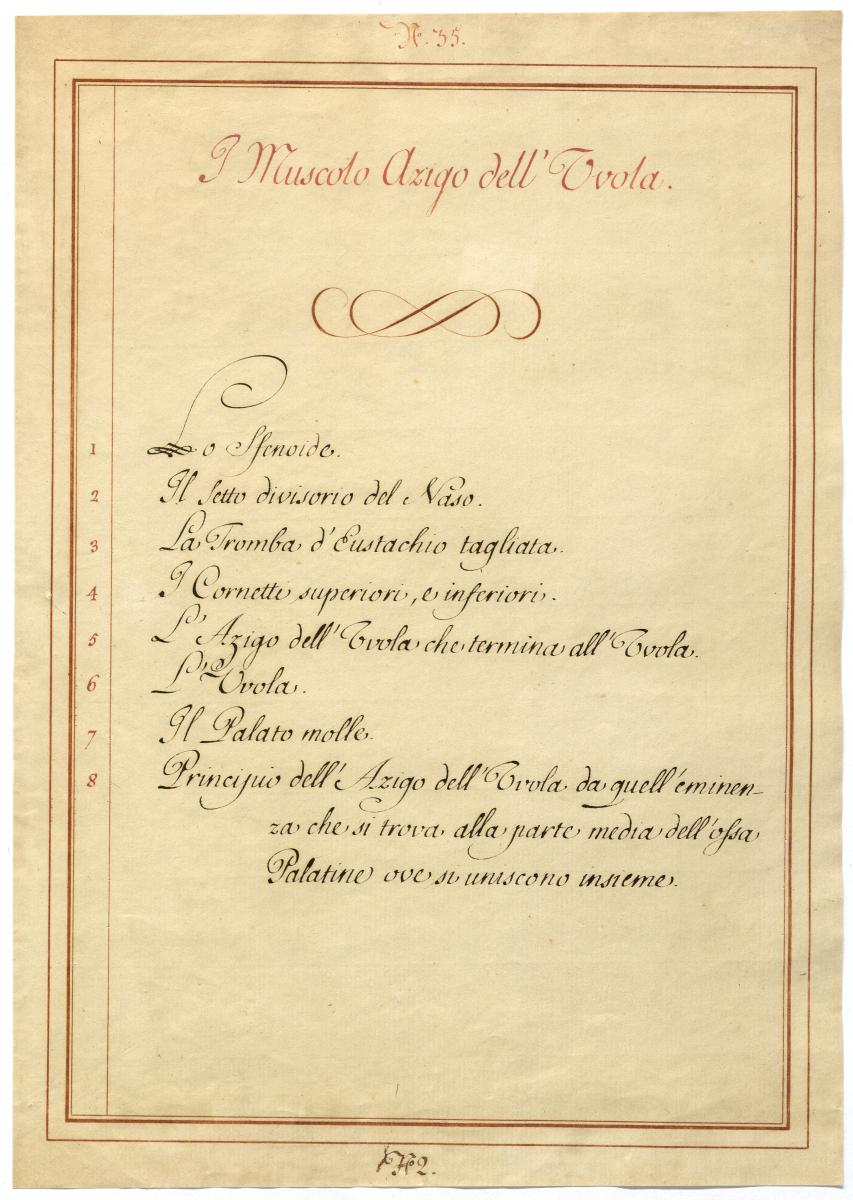 N.º 35.
I Muscolo Azigo dell' Uvola.
1 Lo Sfenoide.
2 Il Setto divisorio del Naso.
3 La Tromba d'Eustachio tagliata.
4 I Cornetti superiori, e inferiori.
5 L'Azigo dell'Uvola che termina all'Uvola.
6 L'Uvola.
7 Il Palato molle.
8 Principio dell'Azigo dell'Uvola da quell'eminen-
za che si trova alla parte media dell'ossa
Palatine ove si uniscono insieme.